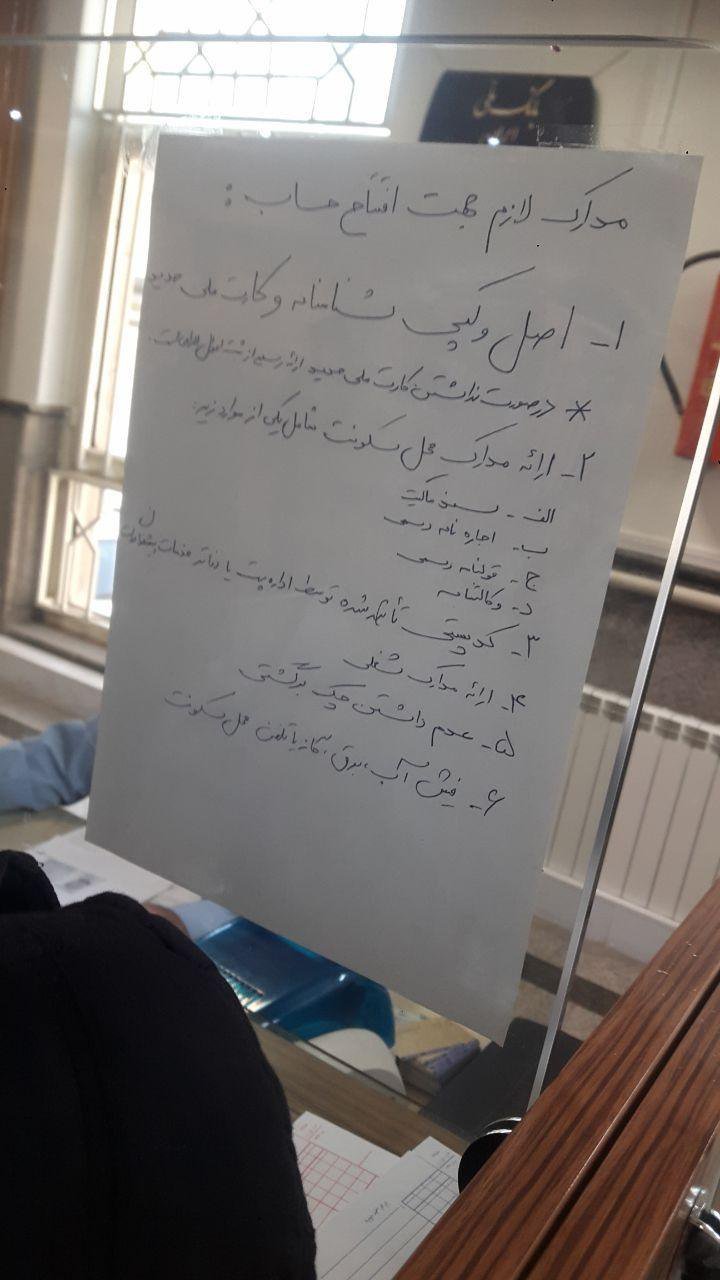 بانک ملی
ایران
مدارک لازم جهت افتتاح حساب :
۱- اصل و کپی شناسنامه و کارت ملی جدید
* در صورت نداشتن کارت ملی جدید ارائه رسید از ثبت احوال الزامیست.
۲- ارائه مدارک محل سکونت شامل یکی از موارد زیر:
الف - سند مالکیت
ب - اجاره نامه رسمی
ج - قولنامه رسمی
د - وکالتنامه
۳- کدپستی تأیید شده توسط اداره پست یا دفاتر خدمات
۴- ارائه مدارک شغلی
۵- عدم داشتن چک برگشتی
۶- فیش آب، برق، گاز یا تلفن محل سکونت